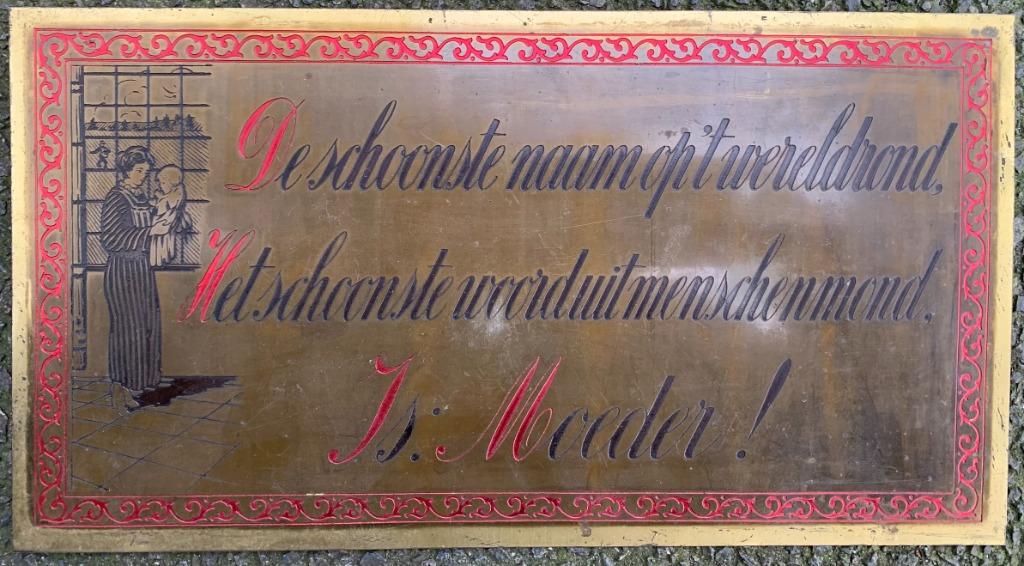 De schoonste naam op 't wereldrond,
Het schoonste woord uit menschenmond,
Is: Moeder!